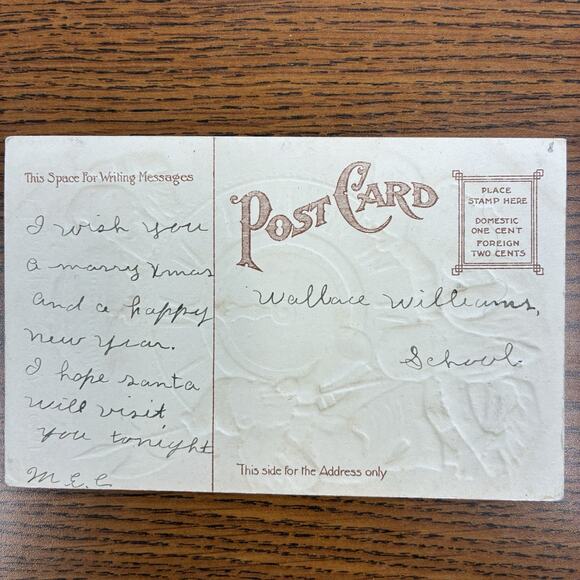 8
This Space For Writing Messages
POST CARD
PLACE
STAMP HERE
DOMESTIC
ONE CENT
FOREIGN
TWO CENTS
I wish you
a marry Xmas
and a happy
new year.
I hope santa
will visit
you tonight
M. E. C.
Wallace Williams,
School.
This side for the Address only